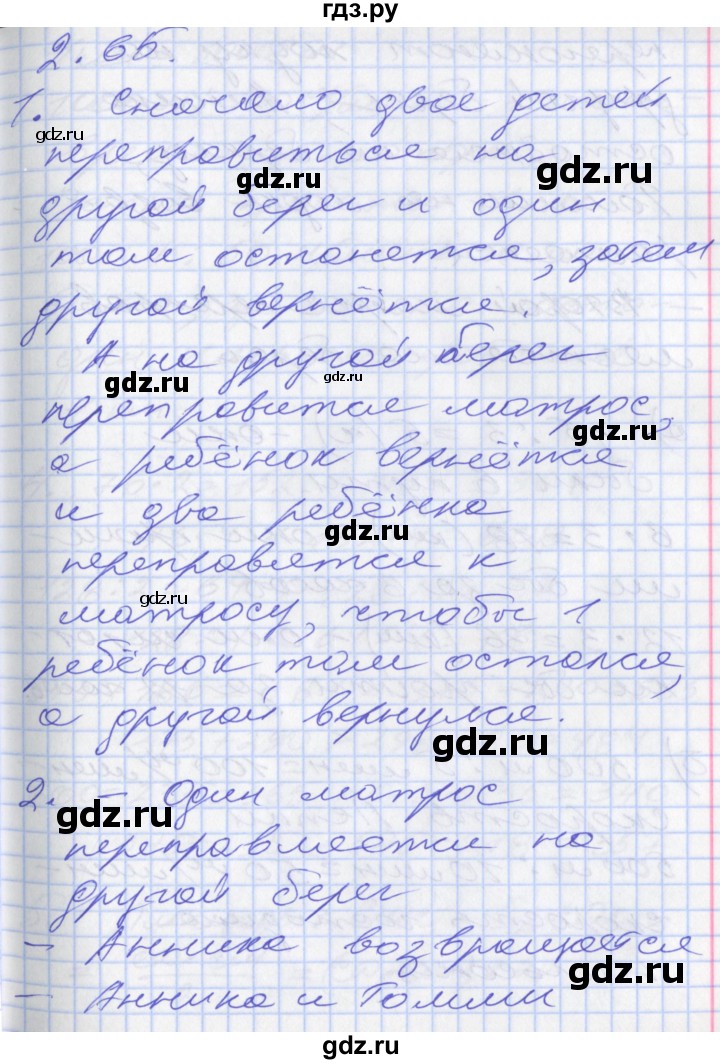 гдз.ру
2.65.
1. Сначало двое детей
gdz.ru
переправиться на
gdz.ru gdz.ru
другой берег и один
там останется, затем
gdz.ru
другой вернётся.
А на другой берег
gdz.ru gdz.ru
переправится матрос,
gdz.ru
а ребёнок вернётся
и два ребёнка
gdz.ru
переправятся к
gdz.ru
матросу, чтобы 1
ребёнок там остался,
а другой вернулся.
gdz.ru
2. – Один матрос
gdz.ru
переправляется на
gdz.ru
другой берег
– Анника возвращается
gdz.ru
– Анника и Томми
gdz.ru